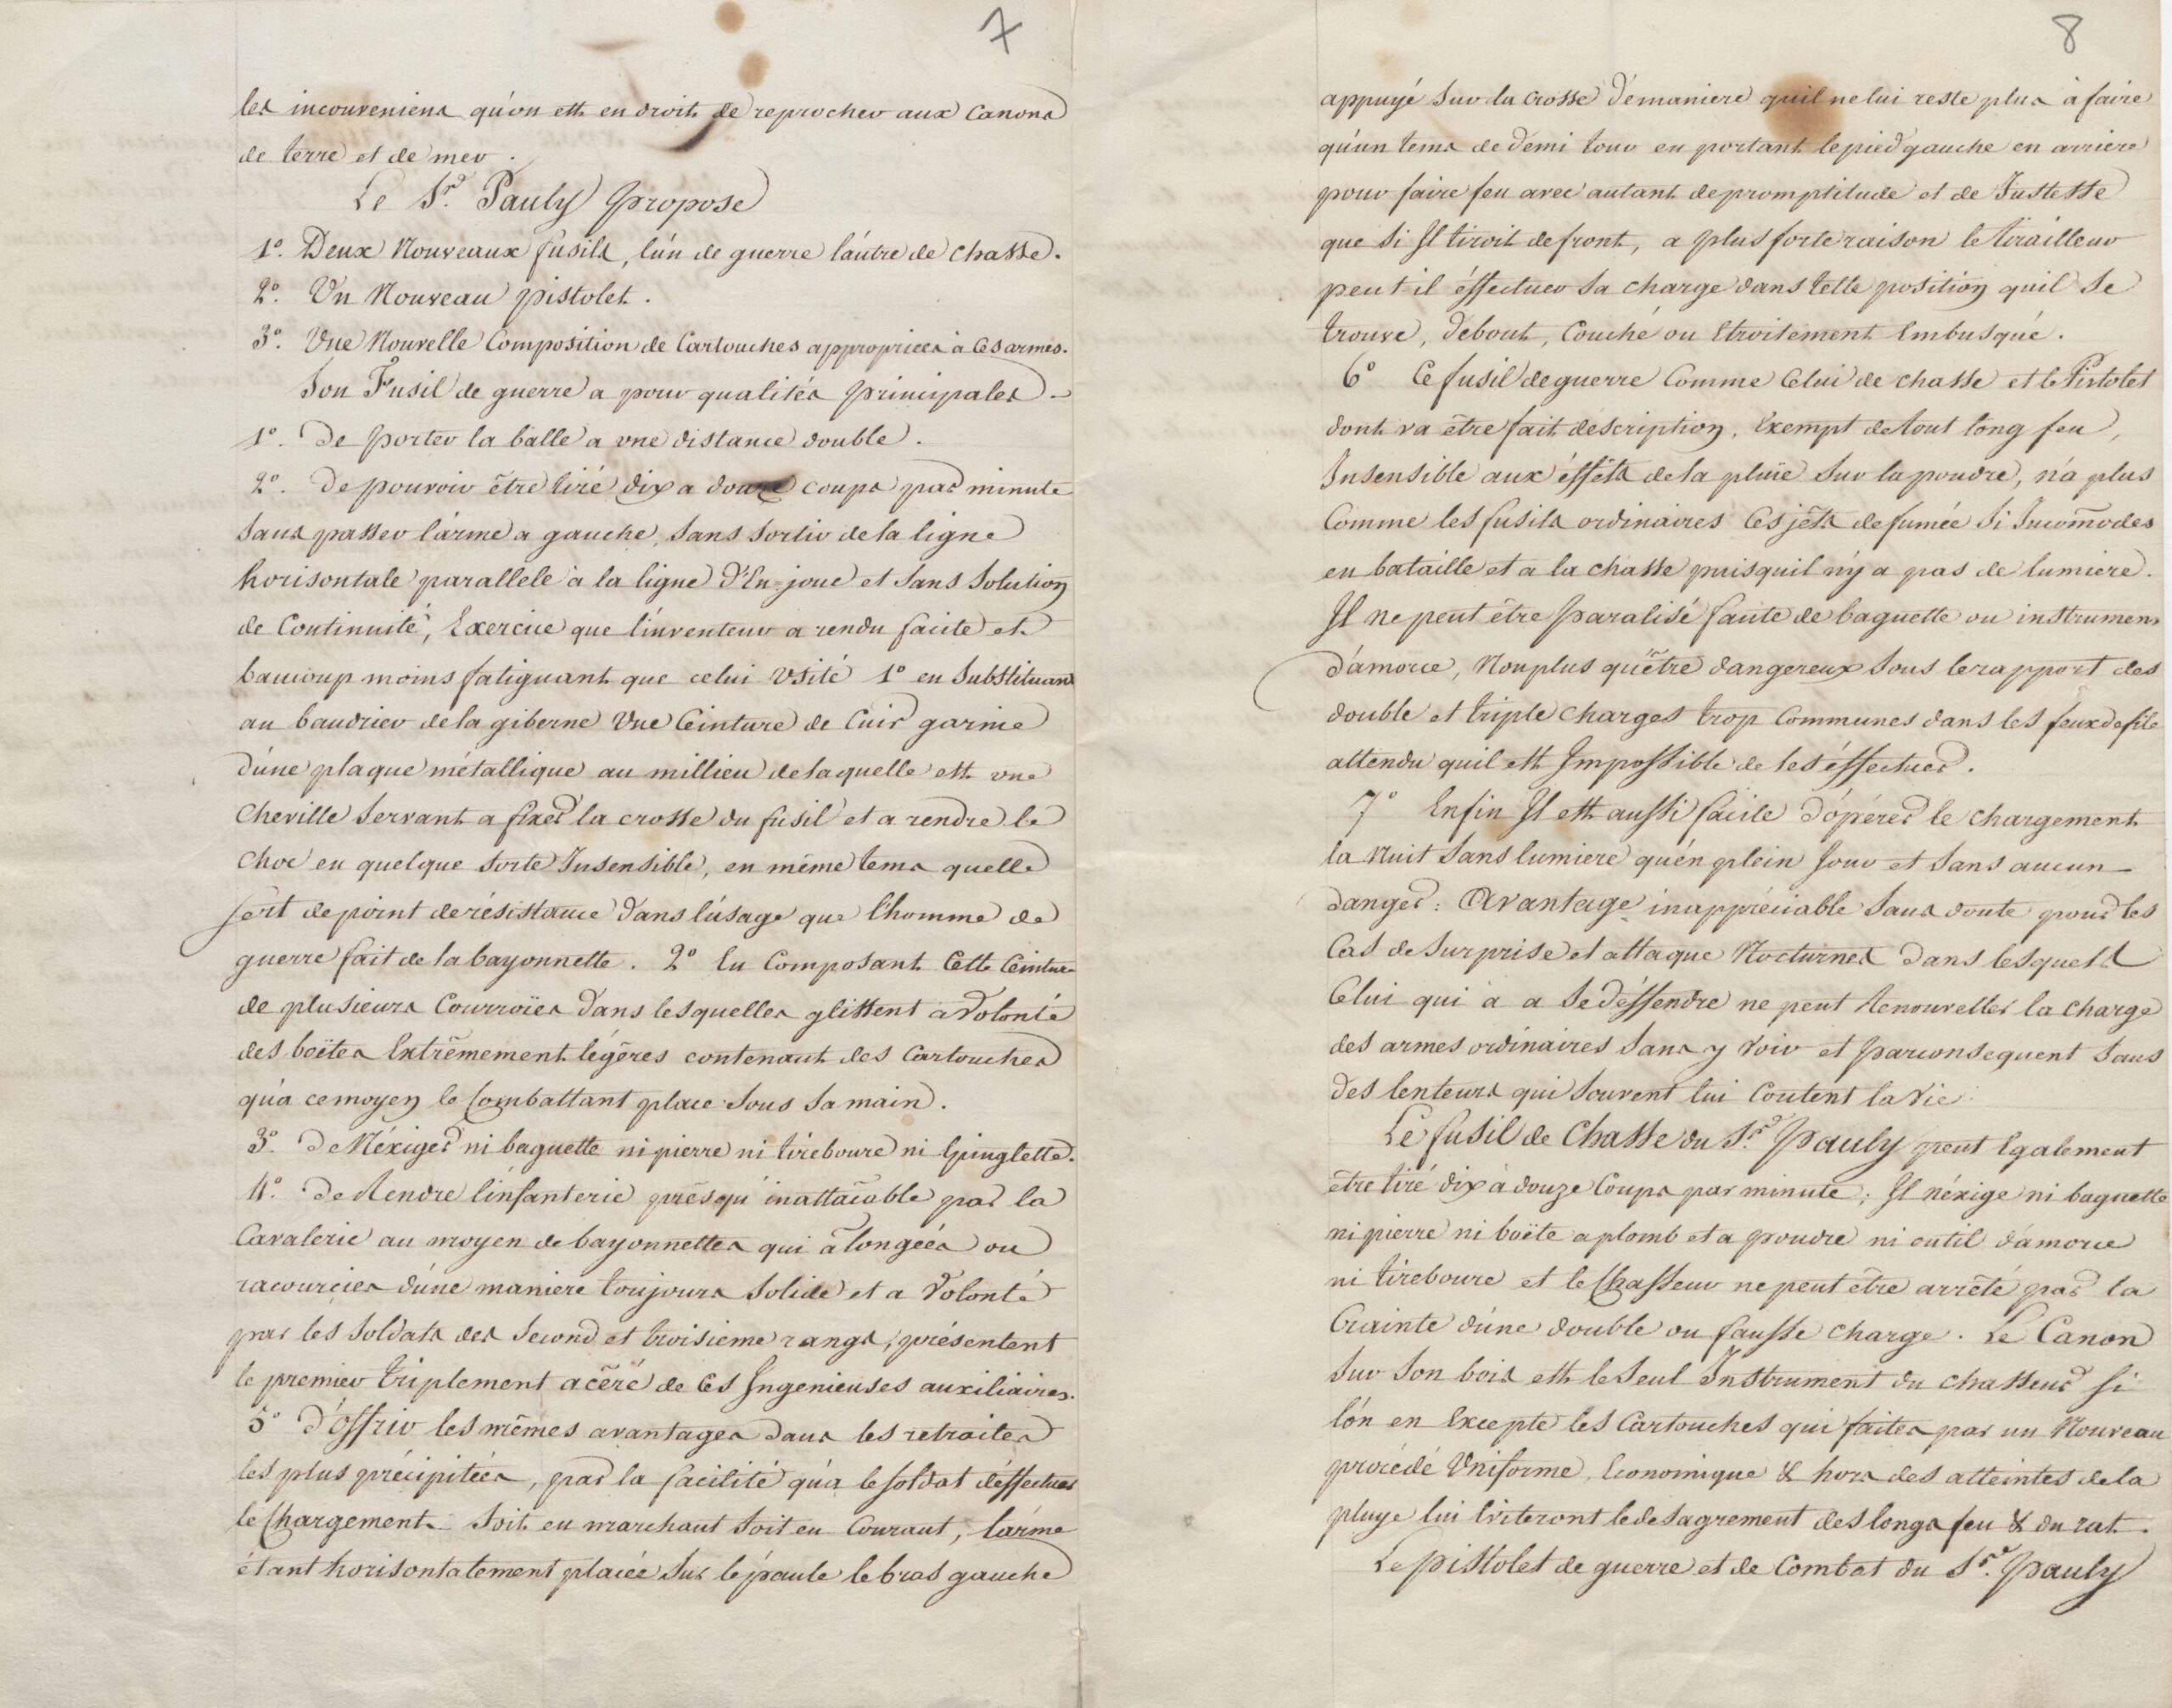 7
les inconveniens qu'on est en droit de reprocher aux Canons
de terre et de mer.
Le Sr. Pauly propose
1º. Deux Nouveaux fusils, l'un de guerre l'autre de chasse.
2º. Un Nouveau pistolet.
3º. Une Nouvelle Composition de Cartouches appropriées à Ces armes.
Son Fusil de guerre a pour qualités principales.
1º. De porter la balle a une distance double.
2º. De pouvoir être tiré dix a douze coups par minute
sans passer l'arme a gauche, sans sortir de la ligne
horisontale parallele à la ligne d'En-joue et sans Solution
de Continuité, Exercice que l'inventeur a rendu facile et
baucoup moins fatiguant que celui usité 1º en Substituant
au baudrier de la giberne Une Ceinture de Cuir garnie
d'une plaque métallique au millieu de laquelle est une
cheville Servant a fixer la crosse du fusil et a rendre le
choc en quelque sorte Insensible, en même tems quelle
sert de point de résistance dans l'usage que l'homme de
guerre fait de la bayonnette. 2º En Composant Cette Ceinture
de plusieurs Courroïes dans lesquelles glissent à Volonté
des boëtes Extrêmement légères contenant des Cartouches
qu'a ce moyen le Combattant place sous Sa main.
3º. de N'éxiger ni baguette ni pierre ni tireboure ni Epinglette.
4º. de Rendre l'infanterie presqu'inattacable par la
Cavalerie au moyen de bayonnettes qui alongées ou
racourcies d'une maniere toujours Solide et a Volonté
par les Soldats des Second et troisieme rangs, présentent
le premier triplement acéré de Ces Ingenieuses auxiliaires.
5º d'offrir les mêmes avantages dans les retraites
les plus précipitées, par la facilité qu'a le Soldat d'effectuer
le Chargement Soit en marchant Soit en Courant, l'arme
étant horisontalement placée Sur l'épaule le bras gauche
8
appuyé Sur la Crosse de maniere qu'il ne lui reste plus à faire
qu'un tems de demi tour en portant le pied gauche en arriere
pour faire feu avec autant de promptitude et de Justesse
que Si Il tiroit de front, a plus forte raison le tirailleur
peut il éffectuer Sa charge dans telle position quil Se
trouve, debout, Couché ou Etroitement Embusqué.
6º Ce fusil de guerre Comme Celui de chasse et le Pistolet
dont va être fait description, Exempt de tout long feu,
Insensible aux éffets de la pluïe Sur la poudre, n'a plus
Comme les fusils ordinaires Ces jêts de fumée Si Incomodes
en bataille et a la chasse puisquil n'y a pas de lumiere.
Il ne peut être paralisé faute de baguette ou instrumens
d'amorce, Non plus qu'être dangereux Sous le rapport des
double et triple charges trop Communes dans les feux de file
attendu quil est Impossible de les éffectuer.
7º Enfin Il est aussi facile d'opérer le chargement
la Nuit Sans lumiere qu'en plein Jour et Sans aucun
danger: Avantage inappréciable Sans doute pour les
Cas de Surprise et attaque Nocturnes dans lesquels
Celui qui a a Se déffendre ne peut Renouveller la charge
des armes ordinaires Sans y Voir et par consequent Sans
des lenteurs qui Souvent lui Coutent la Vie.
Le fusil de Chasse du Sr. Pauly peut Egalement
être tiré dix à douze Coups par minute; Il n'éxige ni baguette
ni pierre ni boëte a plomb et a poudre ni outil d'amorce
ni tireboure et le Chasseur ne peut être arrêté par la
Crainte d'une double ou fausse charge. Le Canon
Sur Son bois est le Seul Instrument du chasseur Si
l'on en Excepte les Cartouches qui faites par un Nouveau
procédé Uniforme, Economique & hors des atteintes de la
pluye lui Eviteront le desagrement des longs feu & du rat.
Le pistolet de guerre et de Combat du Sr. Pauly